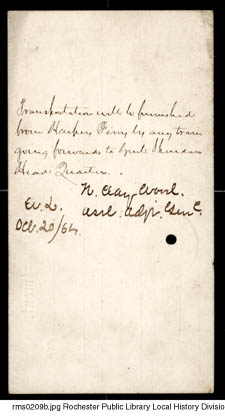 Transportation will be furnished
from Harpers Ferry by any train
going forwards to Genl Sheridans
Head Quarters.
H. Clay Wood.
Asst. Adjt. Genl.
Oct. 20/64
rms0209b.jpg Rochester Public Library Local History Divisio